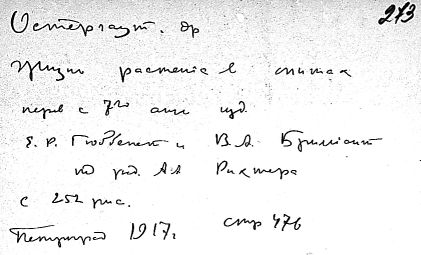 273
Остергаут. др
Жизнь растенiя в опытах
перев с 7го анг изд.
Е. Р. Гюббенет и В. А. Бриллiант
под ред. А А Рихтера
с 252 рис.
Петроград 1917 г. стр 476